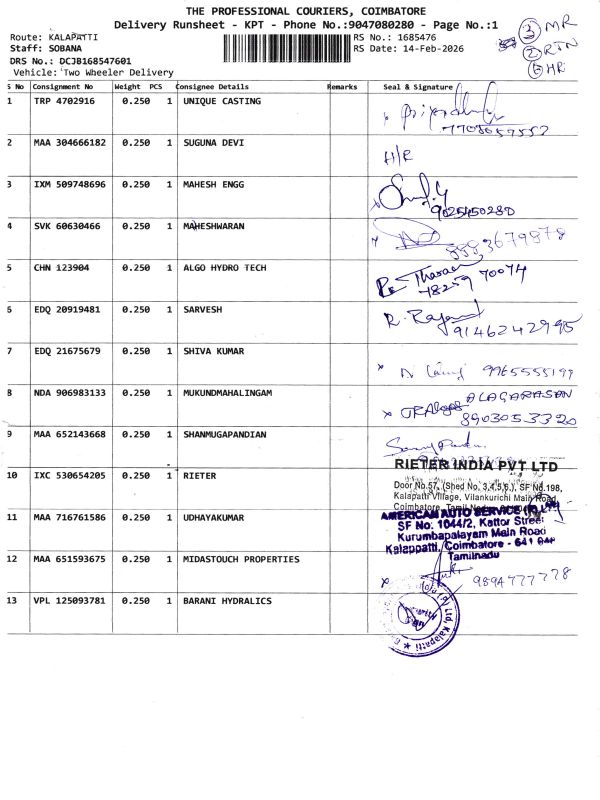 THE PROFESSIONAL COURIERS, COIMBATORE
Delivery Runsheet - KPT - Phone No.:9047080280 - Page No.:1
Route: KALAPATTI
RS No.: 1685476
Staff: SOBANA
RS Date: 14-Feb-2026
DRS No.: DCJB168547601
Vehicle: Two Wheeler Delivery
3 MR
2 RTN
HR
S No Consignment No Weight PCS Consignee Details Remarks Seal & Signature
1 TRP 4702916 0.250 1 UNIQUE CASTING
7708657552
2 MAA 304666182 0.250 1 SUGUNA DEVI H/R
3 IXM 509748696 0.250 1 MAHESH ENGG
9025450280
4 SVK 60630466 0.250 1 MAHESHWARAN
8883679878
5 CHN 123904 0.250 1 ALGO HYDRO TECH
78259 70074
6 EDQ 20919481 0.250 1 SARVESH
R. Rajan
9146242995
7 EDQ 21675679 0.250 1 SHIVA KUMAR 9965555199
8 NDA 906983133 0.250 1 MUKUNDMAHALINGAM
ALAGARASAN
8903053320
9 MAA 652143668 0.250 1 SHANMUGAPANDIAN
RIETER INDIA PVT LTD
10 IXC 530654205 0.250 1 RIETER
Door No.57, (Shed No. 3,4,5,6,), SF No.198,
Kalapatti Village, Vilankurichi Main Road
Coimbatore, Tamil
11 MAA 716761586 0.250 1 UDHAYAKUMAR
AMERICAN AUTO SERVICE
SF No: 1044/2, Kattor Street
Kurumbapalayam Main Road
Kalappatti, Coimbatore - 641
Tamilnadu
12 MAA 651593675 0.250 1 MIDASTOUCH PROPERTIES
9894777778
13 VPL 125093781 0.250 1 BARANI HYDRALICS
Ltd, Kalapatti